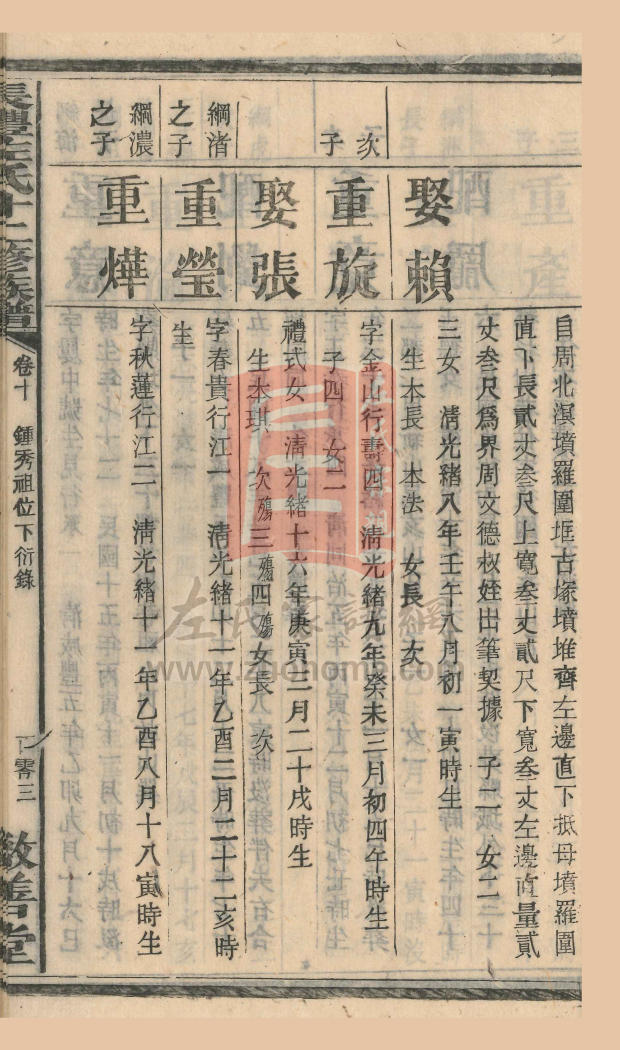 自周北溟墳羅圍堐古塚墳堆齊左邊直下抵母墳羅圍
直下長貳丈叁尺上寬叁丈貳尺下寬叁丈左邊直量貳
丈叁尺爲界周文德叔姪出筆契據 子二 女二
娶賴
三女 淸光緖八年壬午八月初一寅時生
生本長 本法 女長 次
次子
重旋
字金山行壽四 淸光緖九年癸未三月初四午時生
子四 女二
娶張
禮式女 淸光緖十六年庚寅三月二十戌時生
生本琪 次殤三殤四殤女長 次
綱渚之子
重瑩
字春貴行江一 淸光緖十一年乙酉二月二十二亥時
生
綱濃之子
重燁
字秋蓮行江二 淸光緖十一年乙酉八月十八寅時生
左氏十二修族譜
卷十 鍾秀祖位下衍錄
零三
善堂
左氏家譜網
www.zuohome.com